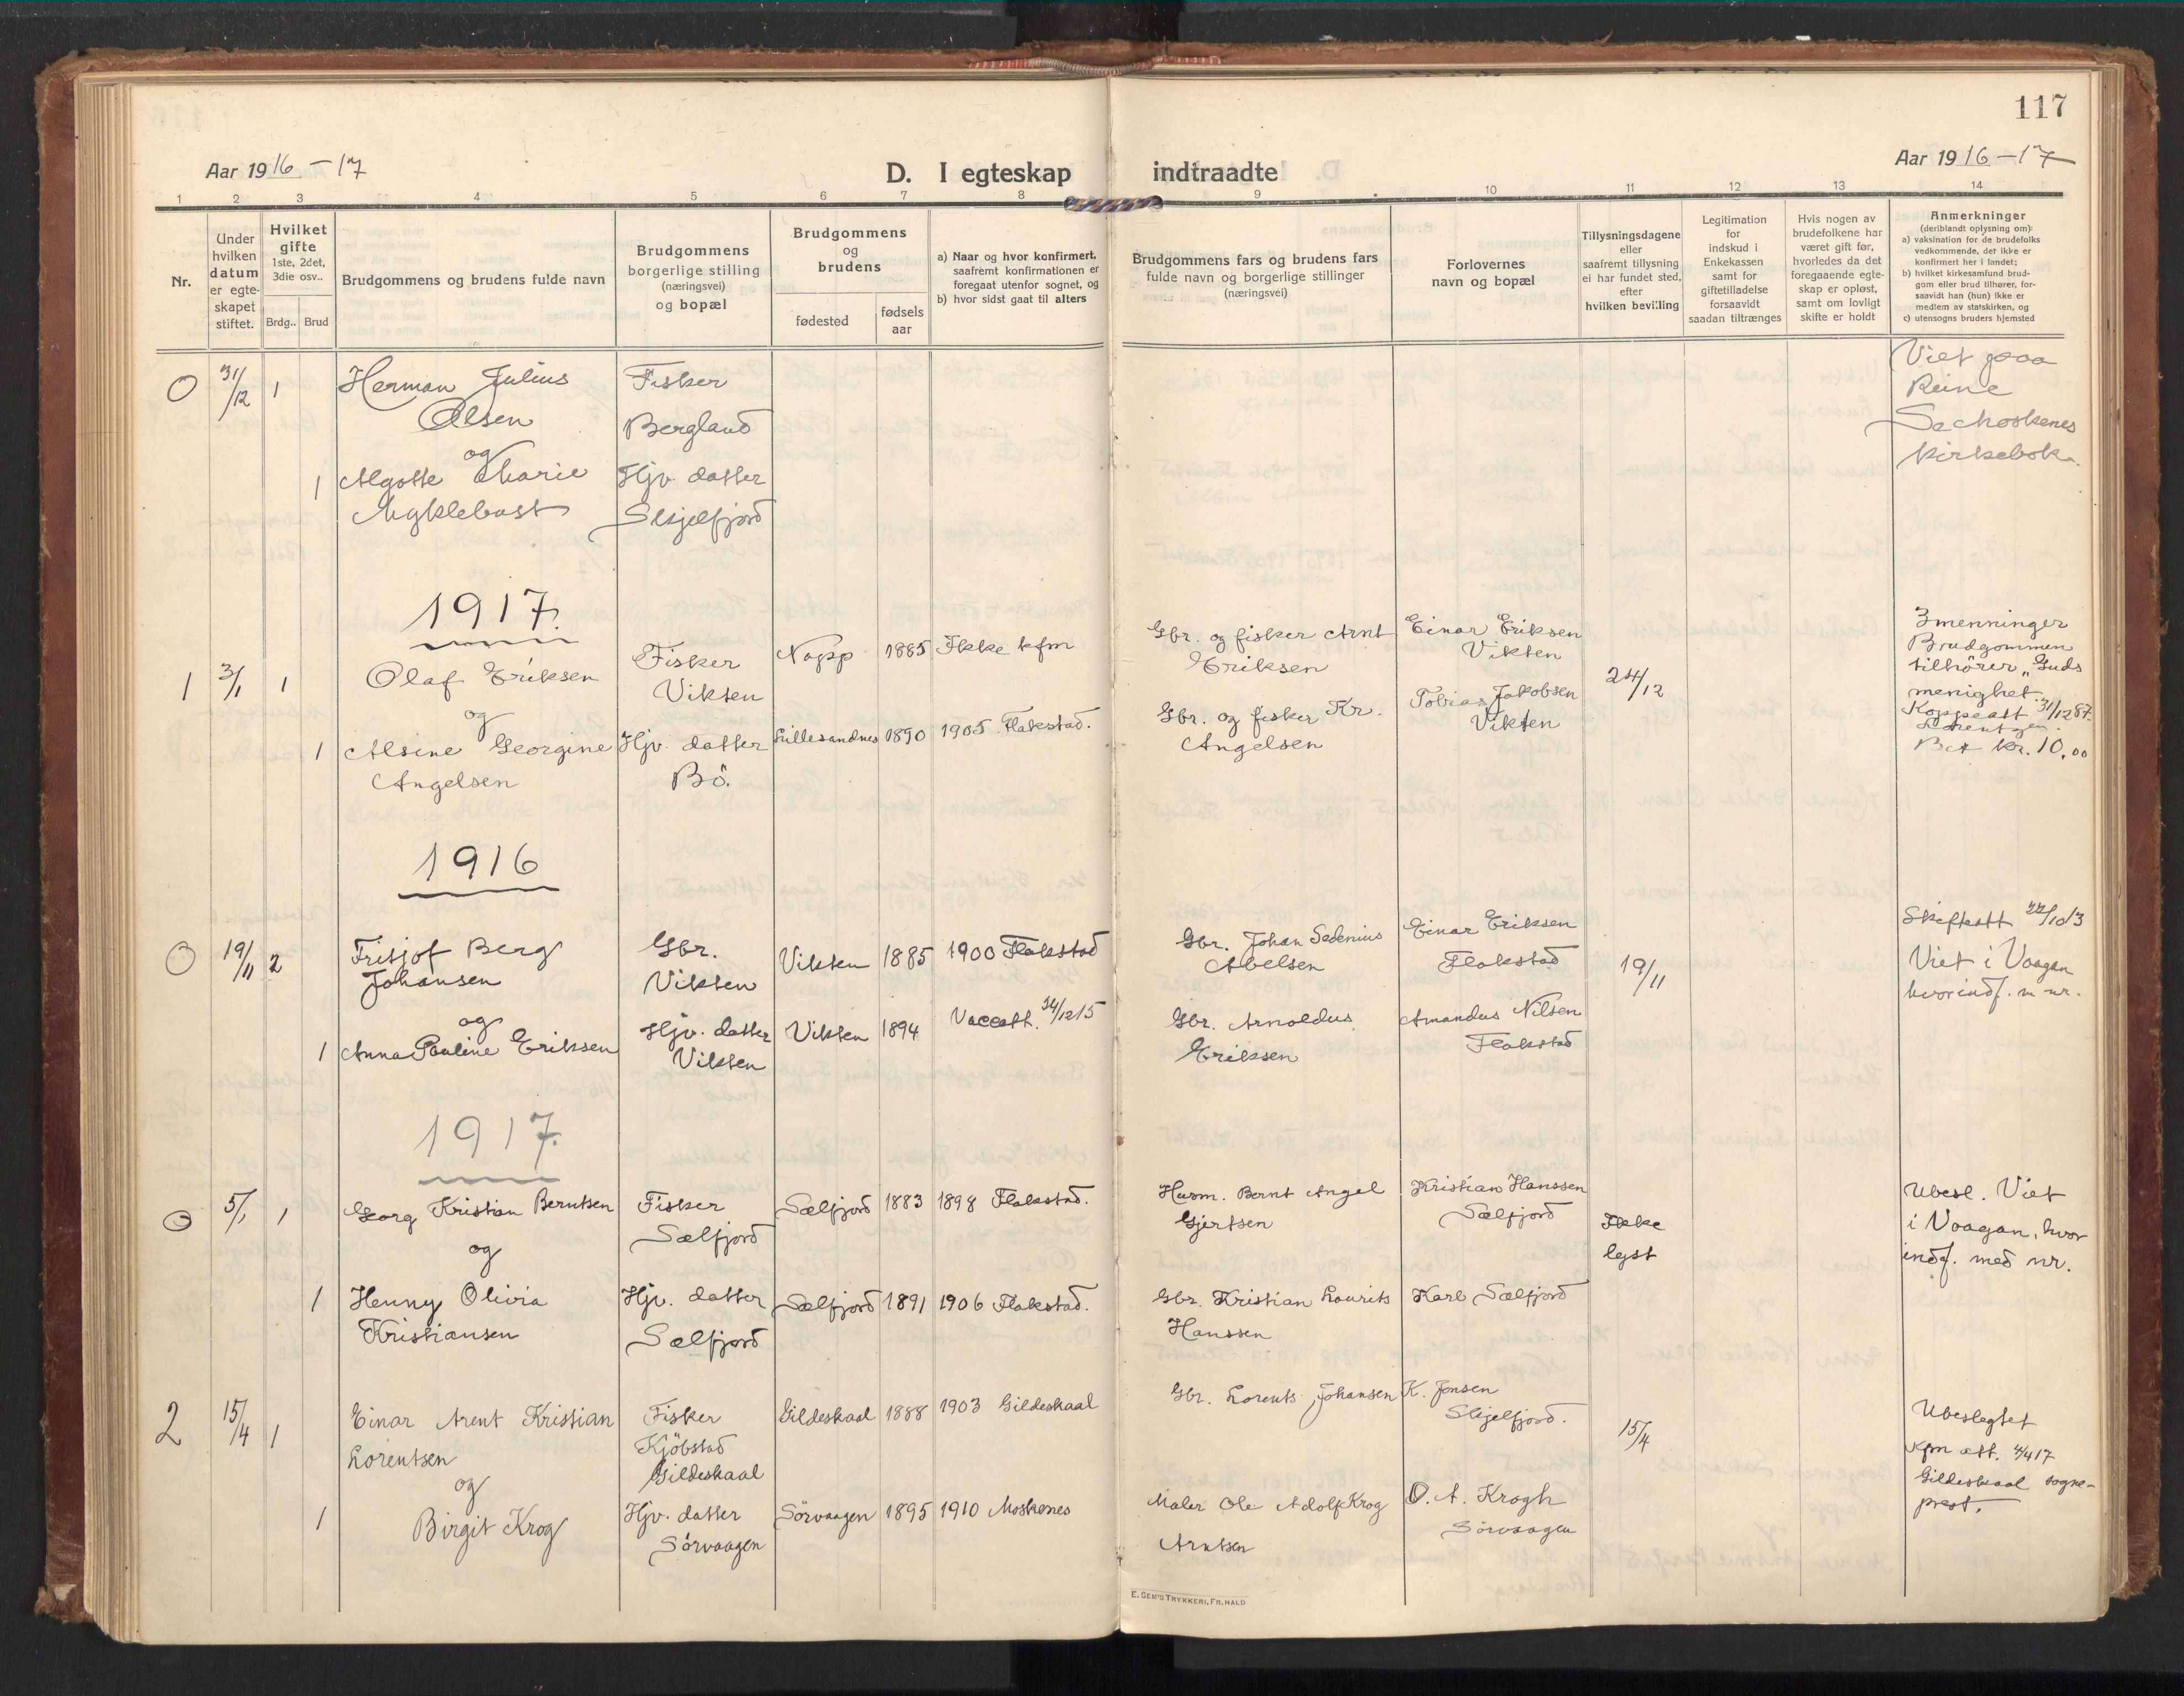 117
Aar 1916-17
D. I egteskap indtraadte
Aar 1916-17
1 2 3 4 5 6 7 8 9 10 11 12 13 14
Nr.
Under
hvilken
datum
er egte-
skapet
stiftet.
Hvilket
gifte
1ste, 2det,
3die osv..
Brdg..
Brud
Brudgommens og brudens fulde navn
Brudgommens
borgerlige stilling
(næringsvei)
og bopæl
Brudgommens
og
brudens
fødested
fødsels
aar
a) Naar og hvor konfirmert,
saafremt konfirmationen er
foregaat utenfor sognet, og
b) hvor sidst gaat til alters
Brudgommens fars og brudens fars
fulde navn og borgerlige stillinger
(næringsvei)
Forlovernes
navn og bopæl
Tillysningsdagene
eller
saafremt tillysning
ei har fundet sted,
efter
hvilken bevilling
Legitimation
for
indskud i
Enkekassen
samt for
giftetilladelse
forsaavidt
saadan tiltrænges
Hvis nogen av
brudefolkene har
været gift før,
hvorledes da det
foregaaende egte-
skap er opløst,
samt om lovligt
skifte er holdt
Anmerkninger
(deriblandt oplysning om):
a) vaksination for de brudefolks
vedkommende, der ikke er
konfirmert her i landet;
b) hvilket kirkesamfund brud-
gom eller brud tilhører, for-
saavidt han (hun) ikke er
medlem av statskirken, og
c) utensogns bruders hjemsted
0 31/12 1
Herman Julius
Olsen
og
1 Algotte Marie
Myklebust
Fisker
Bergland
Hjv. datter
Skjelfjord
Viet paa
Reine
Se Moskenes
kirkebok.
1917.
1 3/1 1
Olaf Eriksen
og
1 Alsine Georgine
Angelsen
Fisker
Vikten
Hjv. datter
Bö.
Napp 1885 Ikke kfm
Lillesandnes 1890 1905 Flakstad.
Gbr. og fisker Arnt
Eriksen
Gbr. og fisker Kr.
Angelsen
Einar Eriksen
Vikten
Tobias Jakobsen
Vikten
24/12
3menninger
Brudgommen
tilhörer „Guds
menighet.
Koppeatt 31/12 87.
Lorentzen.
Bet kr. 10,00
1916
0 19/11 2
Fritjof Berg
Johansen
og
1 Anna Pauline Eriksen
Gbr.
Vikten
Hjv. datter
Vikten
Vikten 1885 1900 Flakstad
Vikten 1894 Vaccatt. 14/12 15
Gbr. Johan Sedenius
Abelsen
Gbr. Arnoldus
Eriksen
Einar Eriksen
Flakstad
Amandus Nilsen
Flakstad
19/11
Skifteatt 22/10 13
Viet i Vaagan
hvor indf. m nr.
1917.
0 5/1 1
Georg Kristian Berntsen
og
1 Henny Olivia
Kristiansen
Fisker
Sælfjord
Hjv. datter
Sælfjord
Sælfjord 1883 1898 Flakstad.
Sælfjord 1891 1906 Flakstad.
Husm. Bernt Angel
Gjertsen
Gbr. Kristian Laurits
Hanssen
Kristian Hanssen
Sælfjord
Karl Sælfjord
Ikke
lyst
Ubesl. Viet
i Vaagan, hvor
indf. med nr.
2 15/4 1
Einar Arent Kristian
Lorentsen
og
1 Birgit Krog
Fisker
Kjöbstad
Gildeskaal
Hjv. datter
Sörvaagen
Gildeskaal 1888 1903 Gildeskaal
Sörvaagen 1895 1910 Moskenes
Gbr. Lorents Johansen
Maler Ole Adolf Krog
Arntsen
K. Jensen
Skjelfjord.
O. A. Krogh
Sörvaagen
15/4
Ubeslegtet
Kfm att. 4/4 17
Gildeskaal sogne-
prest.
E. SEM'S TRYKKERI, FR.HALD